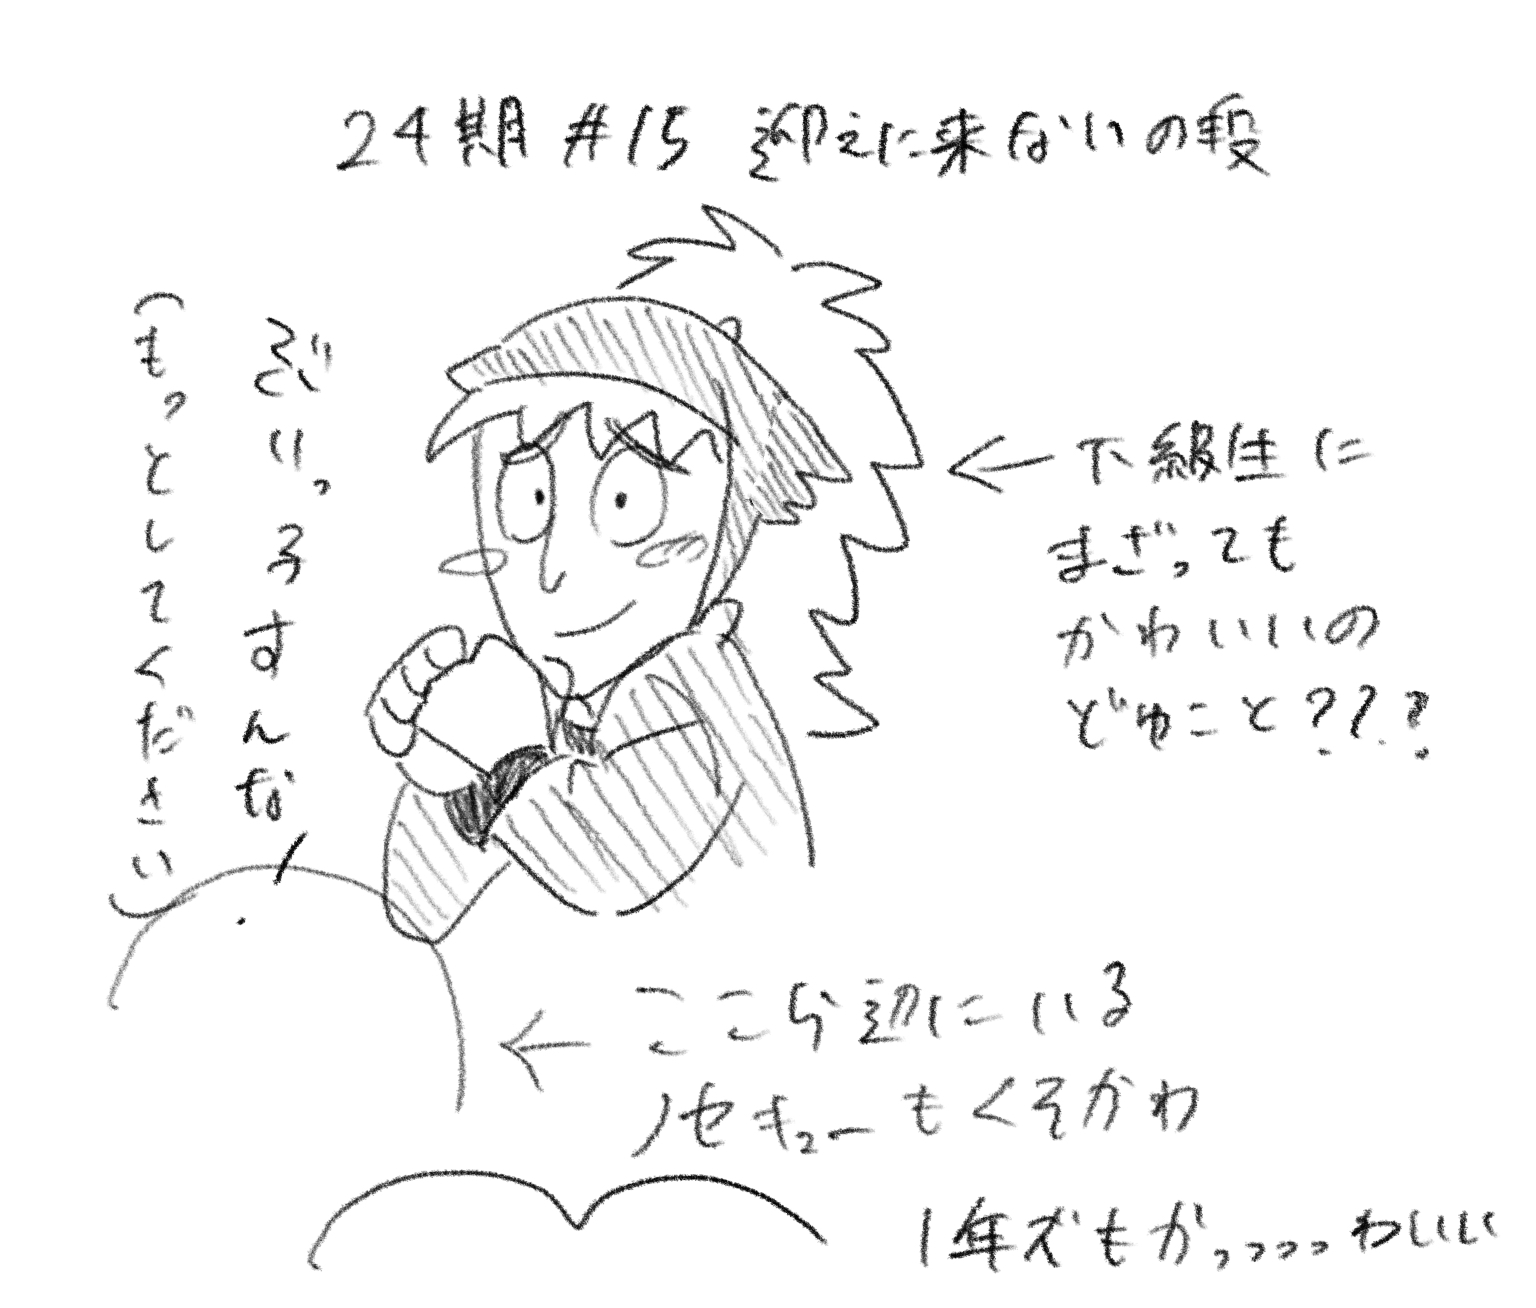 24期 #15 迎えに来ないの段
ぶいっ3すんな
(もっとしてください)
← 下級生に
まざっても
かわいいの
どゆこと???
← ここら辺にいる
ノセキューもくそかわ
1年ズもかっっっっわいい